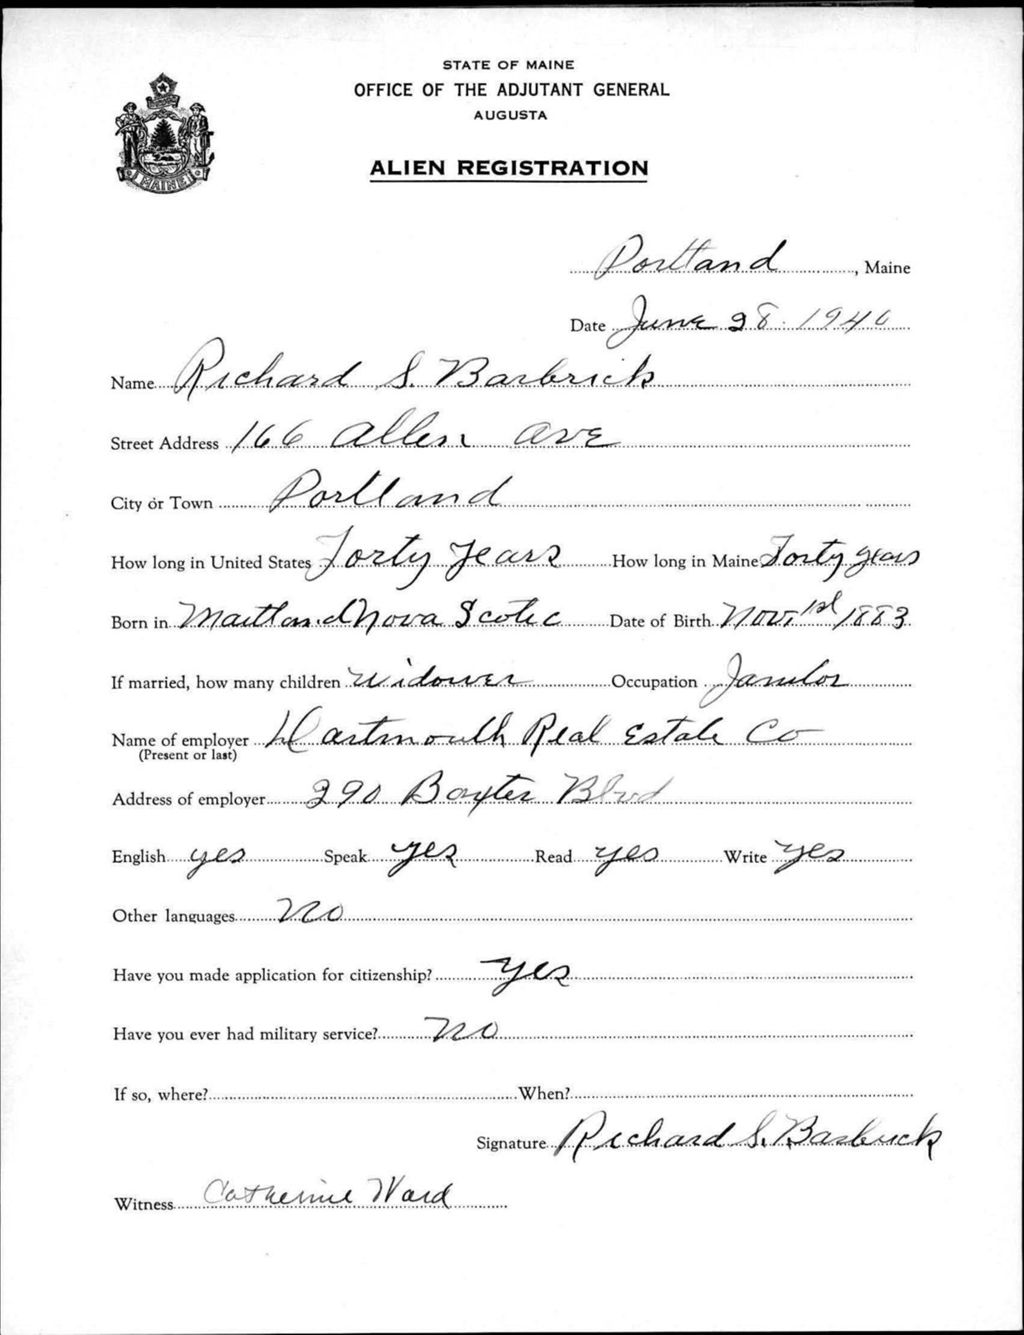 STATE OF MAINE
OFFICE OF THE ADJUTANT GENERAL
AUGUSTA
ALIEN REGISTRATION
MAINE
Portland, Maine
Date June 28. 1940
Name Richard S. Barbrick
Street Address 166 Allen Ave
City or Town Portland
How long in United States Forty Years How long in Maine Forty years
Born in Maitland Nova Scotia Date of Birth Nov. 1st 1883
If married, how many children widower Occupation Janitor
Name of employer Dartmouth Real Estate Co
(Present or last)
Address of employer 290 Baxter Blvd
English yes Speak yes Read yes Write yes
Other languages No
Have you made application for citizenship? yes
Have you ever had military service? No
If so, where? When?
Signature Richard S. Barbrick
Witness Catherine Ward